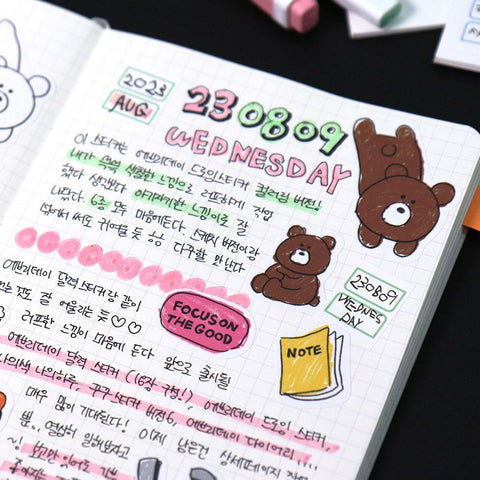 2023
AUG
230809
WEDNESDAY
이 스티커는 에브리데이 드로잉스티커 컬러링 버전!
내가 뚝딱 색칠한 느낌으로 러프하게 작업
했다 생각했다 아기자기한 느낌이로 잘
났다. 6종 모두 마음에든다. 스케치 버전이랑
섞어서 써도 귀여울 듯 ㅎㅎ 다꾸할 맛 난다
에브리데이 달력 스티커랑 같이
쓰는 것도 잘 어울리는 듯♡♡
러프한 느낌이 마음에 든다 앞으로 출시될
FOCUS ON
THE GOOD
230809
WEDNES
DAY
NOTE
에브리데이 달력 스티커 (16장 구성!), 에브리데이 드로잉 스티커,
나의색 나의하루, 꾸꾸스티커 버전6, 에브리데이 다이어리...
매우 많이 기대된다! 이제 남은건 상세페이지 작업
뿐.. 열심히 일해보자고
~! 보고만 있어도 기분